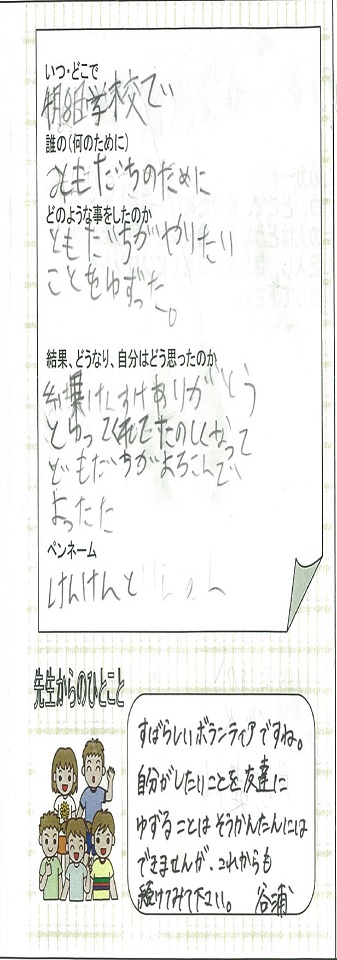 いつ・どこで
朝8日学校で
誰の(何のために)
ともだちのために
どのような事をしたのか
ともだちがやりたい
ことをゆずった。
結果、どうなり、自分はどう思ったのか
結果けんすけありがとう
とゆってくれてたのしくなって
ともだちがよろこんで
よったた
ペンネーム
けんけんと
先生からのひとこと
すばらしいボランティアですね。
自分がしたいことを友達に
ゆずることはそうかんたんには
できませんが、これからも
続けてみて下さい。 谷浦